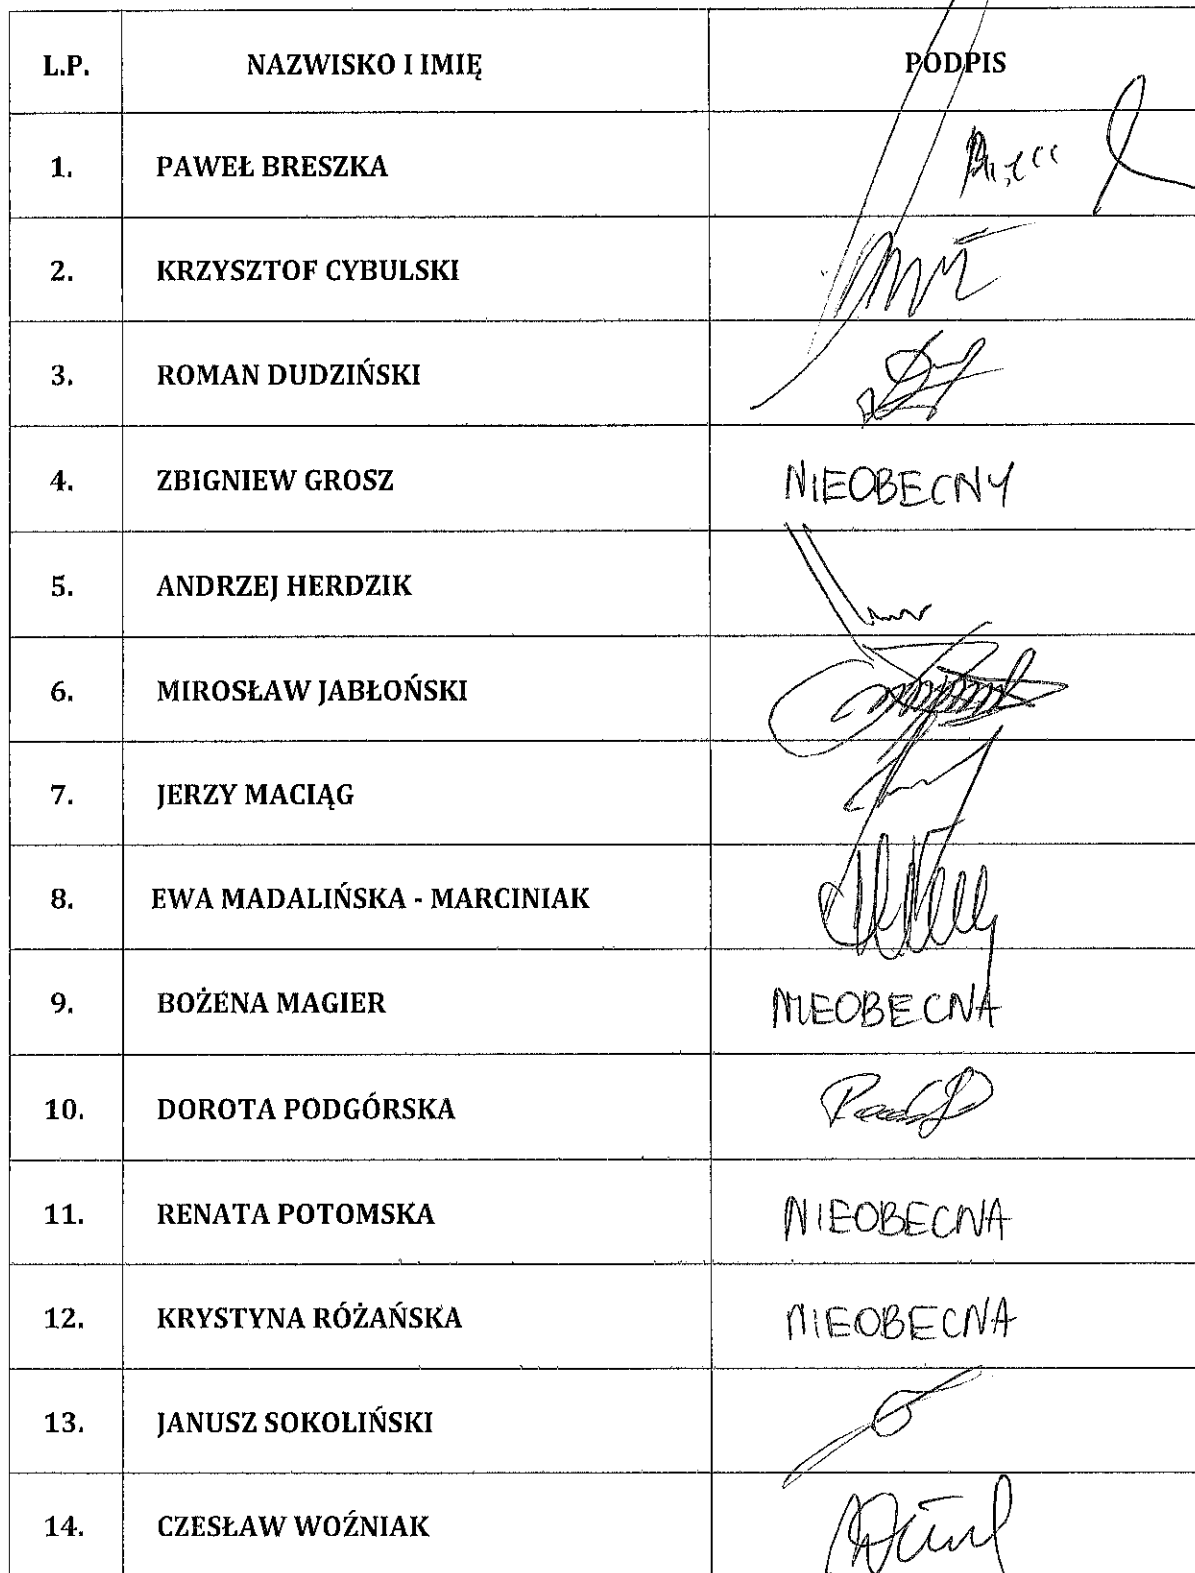 L.P. NAZWISKO I IMIĘ PODPIS
1. PAWEŁ BRESZKA
2. KRZYSZTOF CYBULSKI
3. ROMAN DUDZIŃSKI
4. ZBIGNIEW GROSZ NIEOBECNY
5. ANDRZEJ HERDZIK
6. MIROSŁAW JABŁOŃSKI
7. JERZY MACIĄG
8. EWA MADALIŃSKA - MARCINIAK
9. BOŻENA MAGIER NIEOBECNA
10. DOROTA PODGÓRSKA
11. RENATA POTOMSKA NIEOBECNA
12. KRYSTYNA RÓŻAŃSKA NIEOBECNA
13. JANUSZ SOKOLIŃSKI
14. CZESŁAW WOŹNIAK